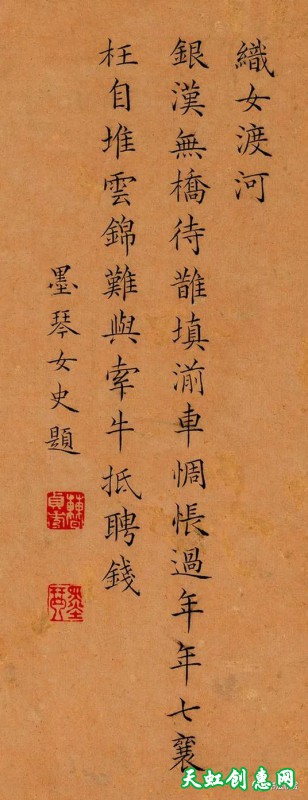 織女渡河
銀漢無橋待䧿填湔車惆悵過年年七襄
枉自堆雲錦難與牽牛抵聘錢
墨琴女史題
曹貞秀
墨琴
天虹创惠网